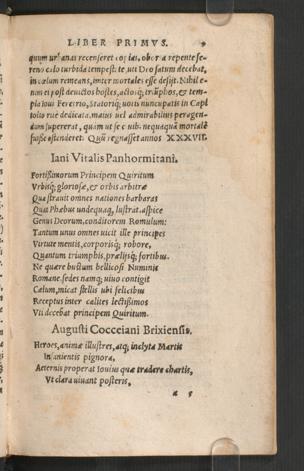 LIBER PRIMVS. 9
quum urbanas recenseret copias, oborta repente se-
reno cælo turbida tempestate, uti Deo satum decebat,
in cælum remeans, inter mortales esse desijt. Nihil e-
nim ei post deuictos hostes, actosq; triũphos, & tem-
pla Ioui Feretrio, Statoriq; uotis nuncupatis in Capi
tolio rite dedicata, maius uel admirabilius peragen-
dum supererat, quàm ut se è uiuis nequaquã mortalẽ
fuisse ostenderet. Quũ regnasset annos XXXVII.
Iani Vitalis Panhormitani.
Fortissimorum Principem Quiritum
Vrbisq; gloriosæ, & orbis arbitræ
Quæ strauit omnes nationes barbaras
Quas Phœbus undequaq; lustrat, aspice
Genus Deorum, conditorem Romulum:
Tantum unus omnes uicit ille principes
Virtute mentis, corporisq; robore,
Quantum triumphis, prælijsq; fortibus.
Ne quære bustum bellicosi Numinis
Romane, sedes namq; uiuo contigit
Cælum, micat stellis ubi felicibus
Receptus inter calites lectissimos
Vti decebat principem Quiritum.
Augusti Cocceiani Brixiensis.
Heroes, animæ illustres, atq; inclyta Martis
Insanientis pignora,
Aeternis properat Iouius quæ tradere chartis,
Vt clara uiuant posteris,
a 5